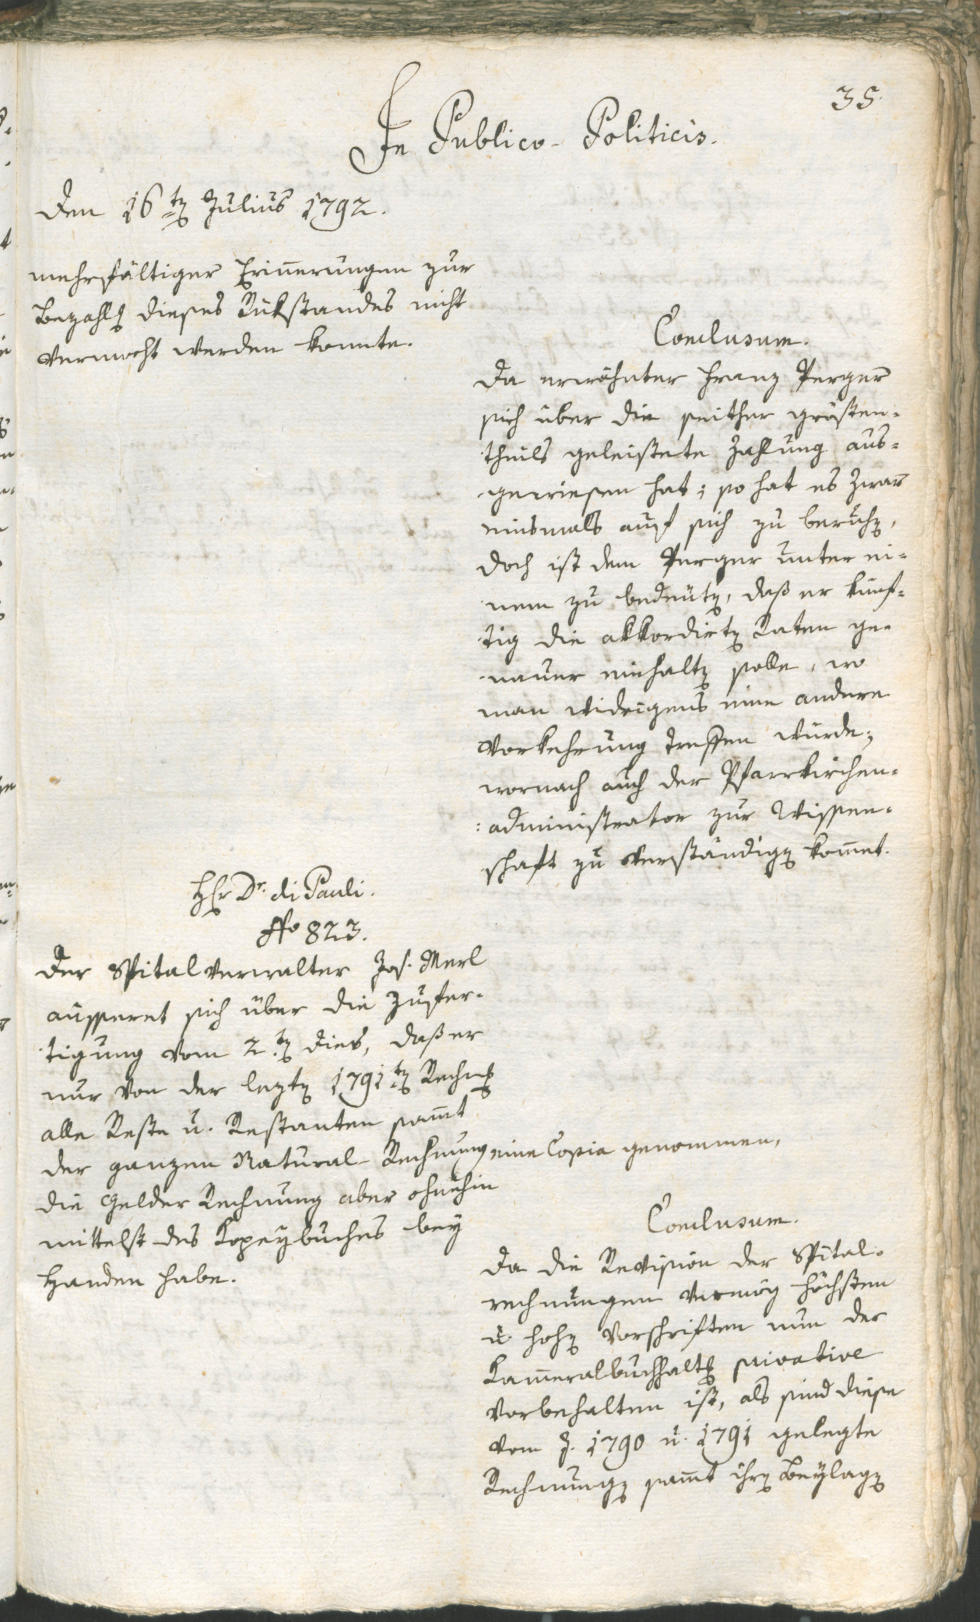 35.
In Publico-Politicis.
Den 16ten Julius 1792.
mehrfältiger Erinnerungen zur
Bezahlg dieses Rükstandes nicht
vermocht werden konnte.
Conclusum.
Da erwöhnter Franz Perger
sich über die seither grösten-
theils geleistete Zahlung aus-
gewiesen hat; so hat es zwar
einsmals auf sich zu beruhen,
doch ist dem Perger unter ei-
nem zu bedeuten, daß er künf-
tig die akkordirten Raten ge-
nauer einhalten solle, wo
man widrigens eine andere
Vorkehrung treffen würde;
wornach auch der Pfarrkirchen-
administrator zur Wissen-
schaft zu verständigen kommet.
Hr Dr. di Pauli.
No 823.
Der Spitalverwalter Jos. Merl
äusseret sich über die Zufer-
tigung vom 2ten dies, daß er
nur von der lezten 1791ten Rechng
alle Reste u. Restanten sammt
der ganzen Natural-Rechnung eine Copia genommen,
die Gelder Rechnung aber ohnehin
mittelst des Kopeybuches bey
Handen habe.
Conclusum.
Da die Revision der Spital-
rechnungen vermög höchsten
u. hohen Vorschriften nun der
Kammeralbuchhaltg privative
vorbehalten ist, als sind diese
vom J. 1790 u. 1791 gelegte
Rechnungen sammt ihren Beylagen